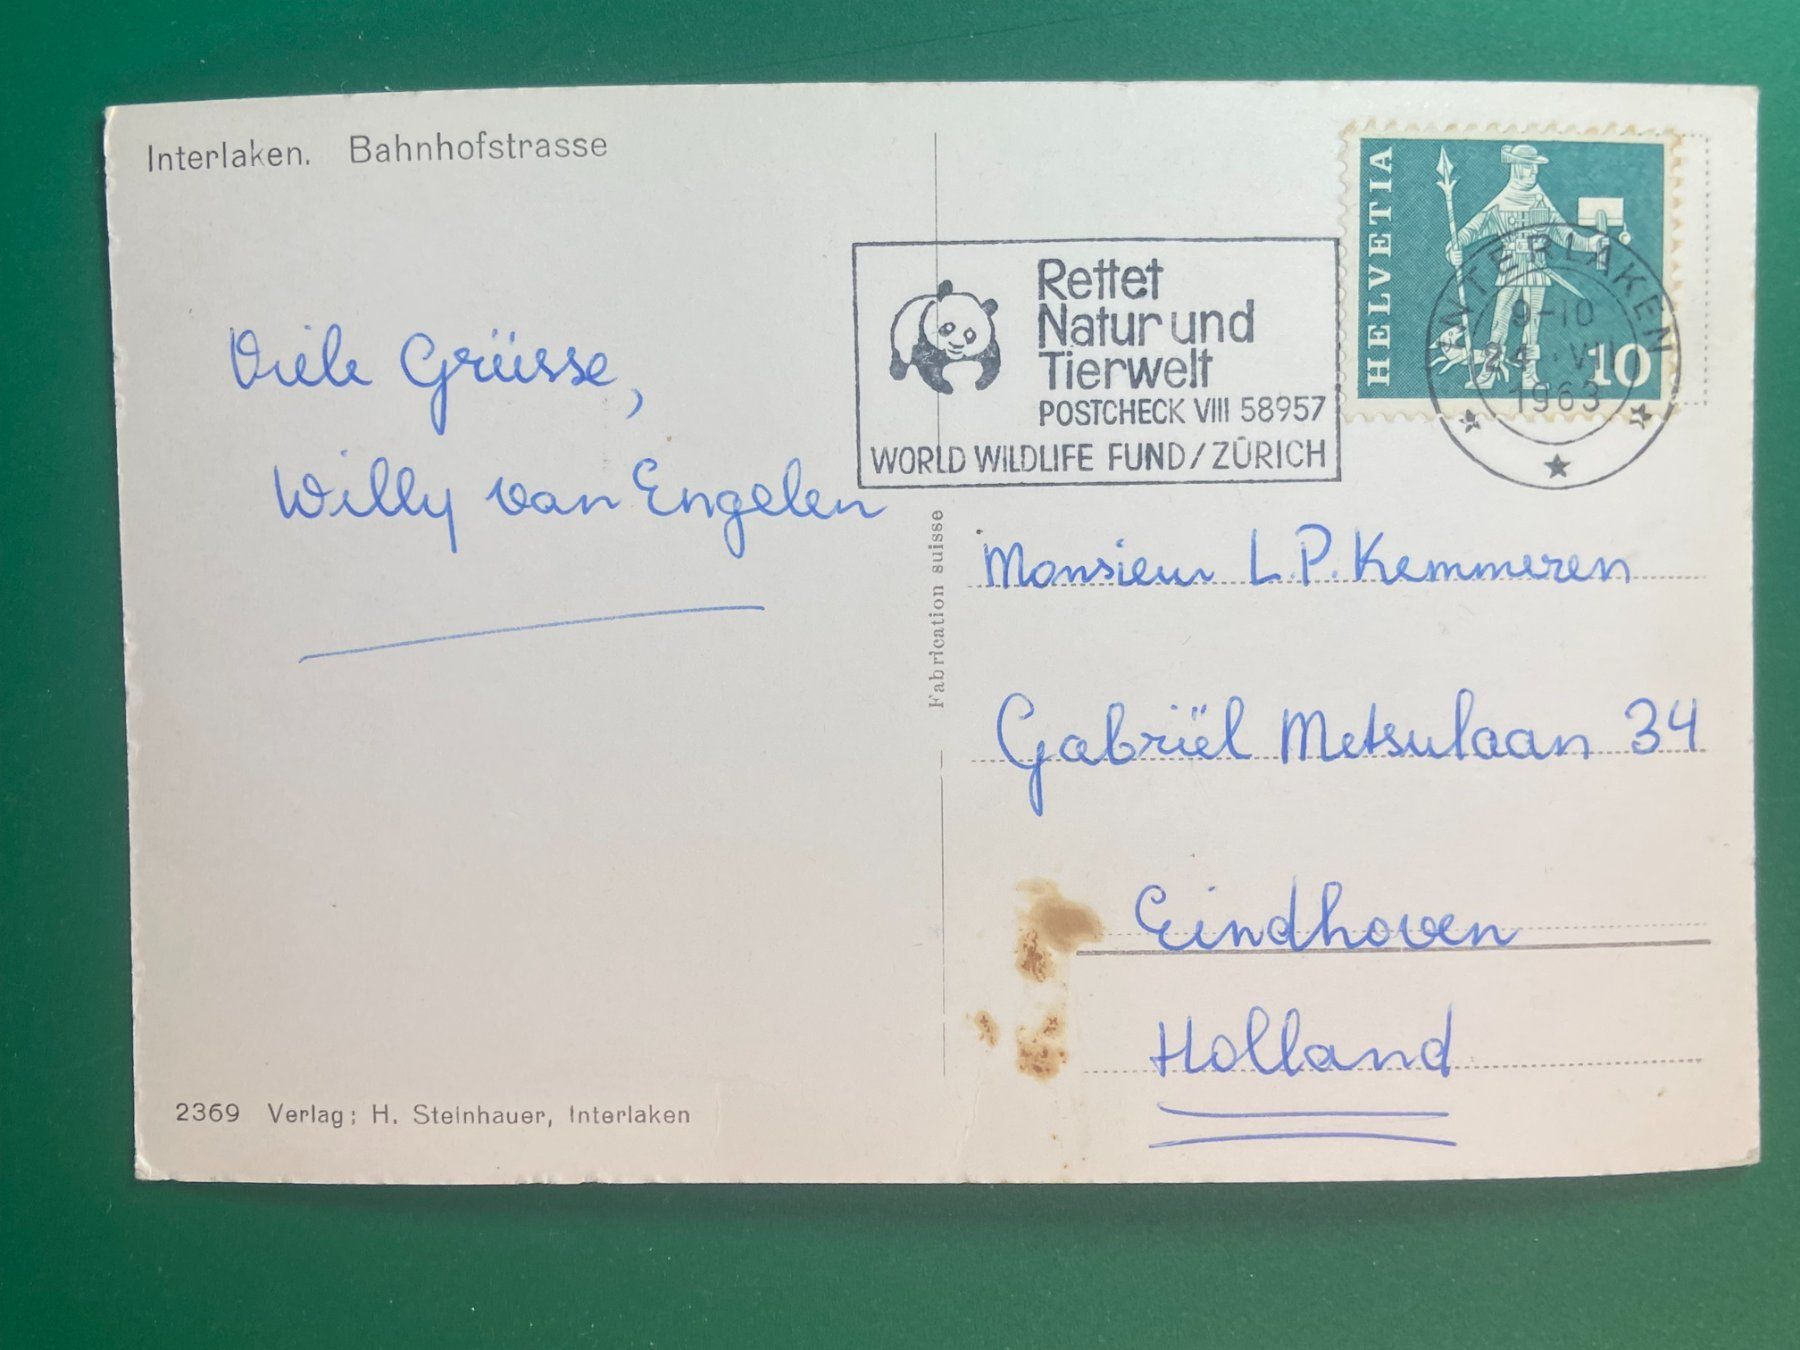 Interlaken. Bahnhofstrasse
Viele Grüsse,
Willy van Engelen
2369 Verlag: H. Steinhauer, Interlaken
Fabrication suisse
Rettet
Natur und
Tierwelt
POSTCHECK VIII 58957
WORLD WILDLIFE FUND/ZÜRICH
HELVETIA
10
INTERLAKEN
9-10
1963
Monsieur L.P. Kemmeren
Gabriël Metsulaan 34
Eindhoven
Holland